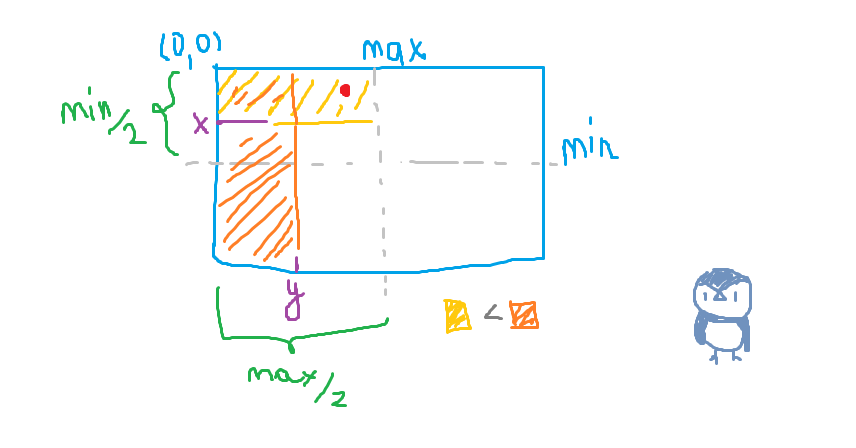 (0,0)
max
min/2
x
min
y
<
max/2